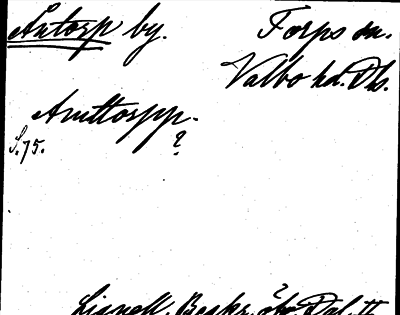 Antorp by. Torps sn.
Valbo hd. Dls.
Anttorpp.
S. 75. ?
Lignell, Beskr. öfv. Dal. II